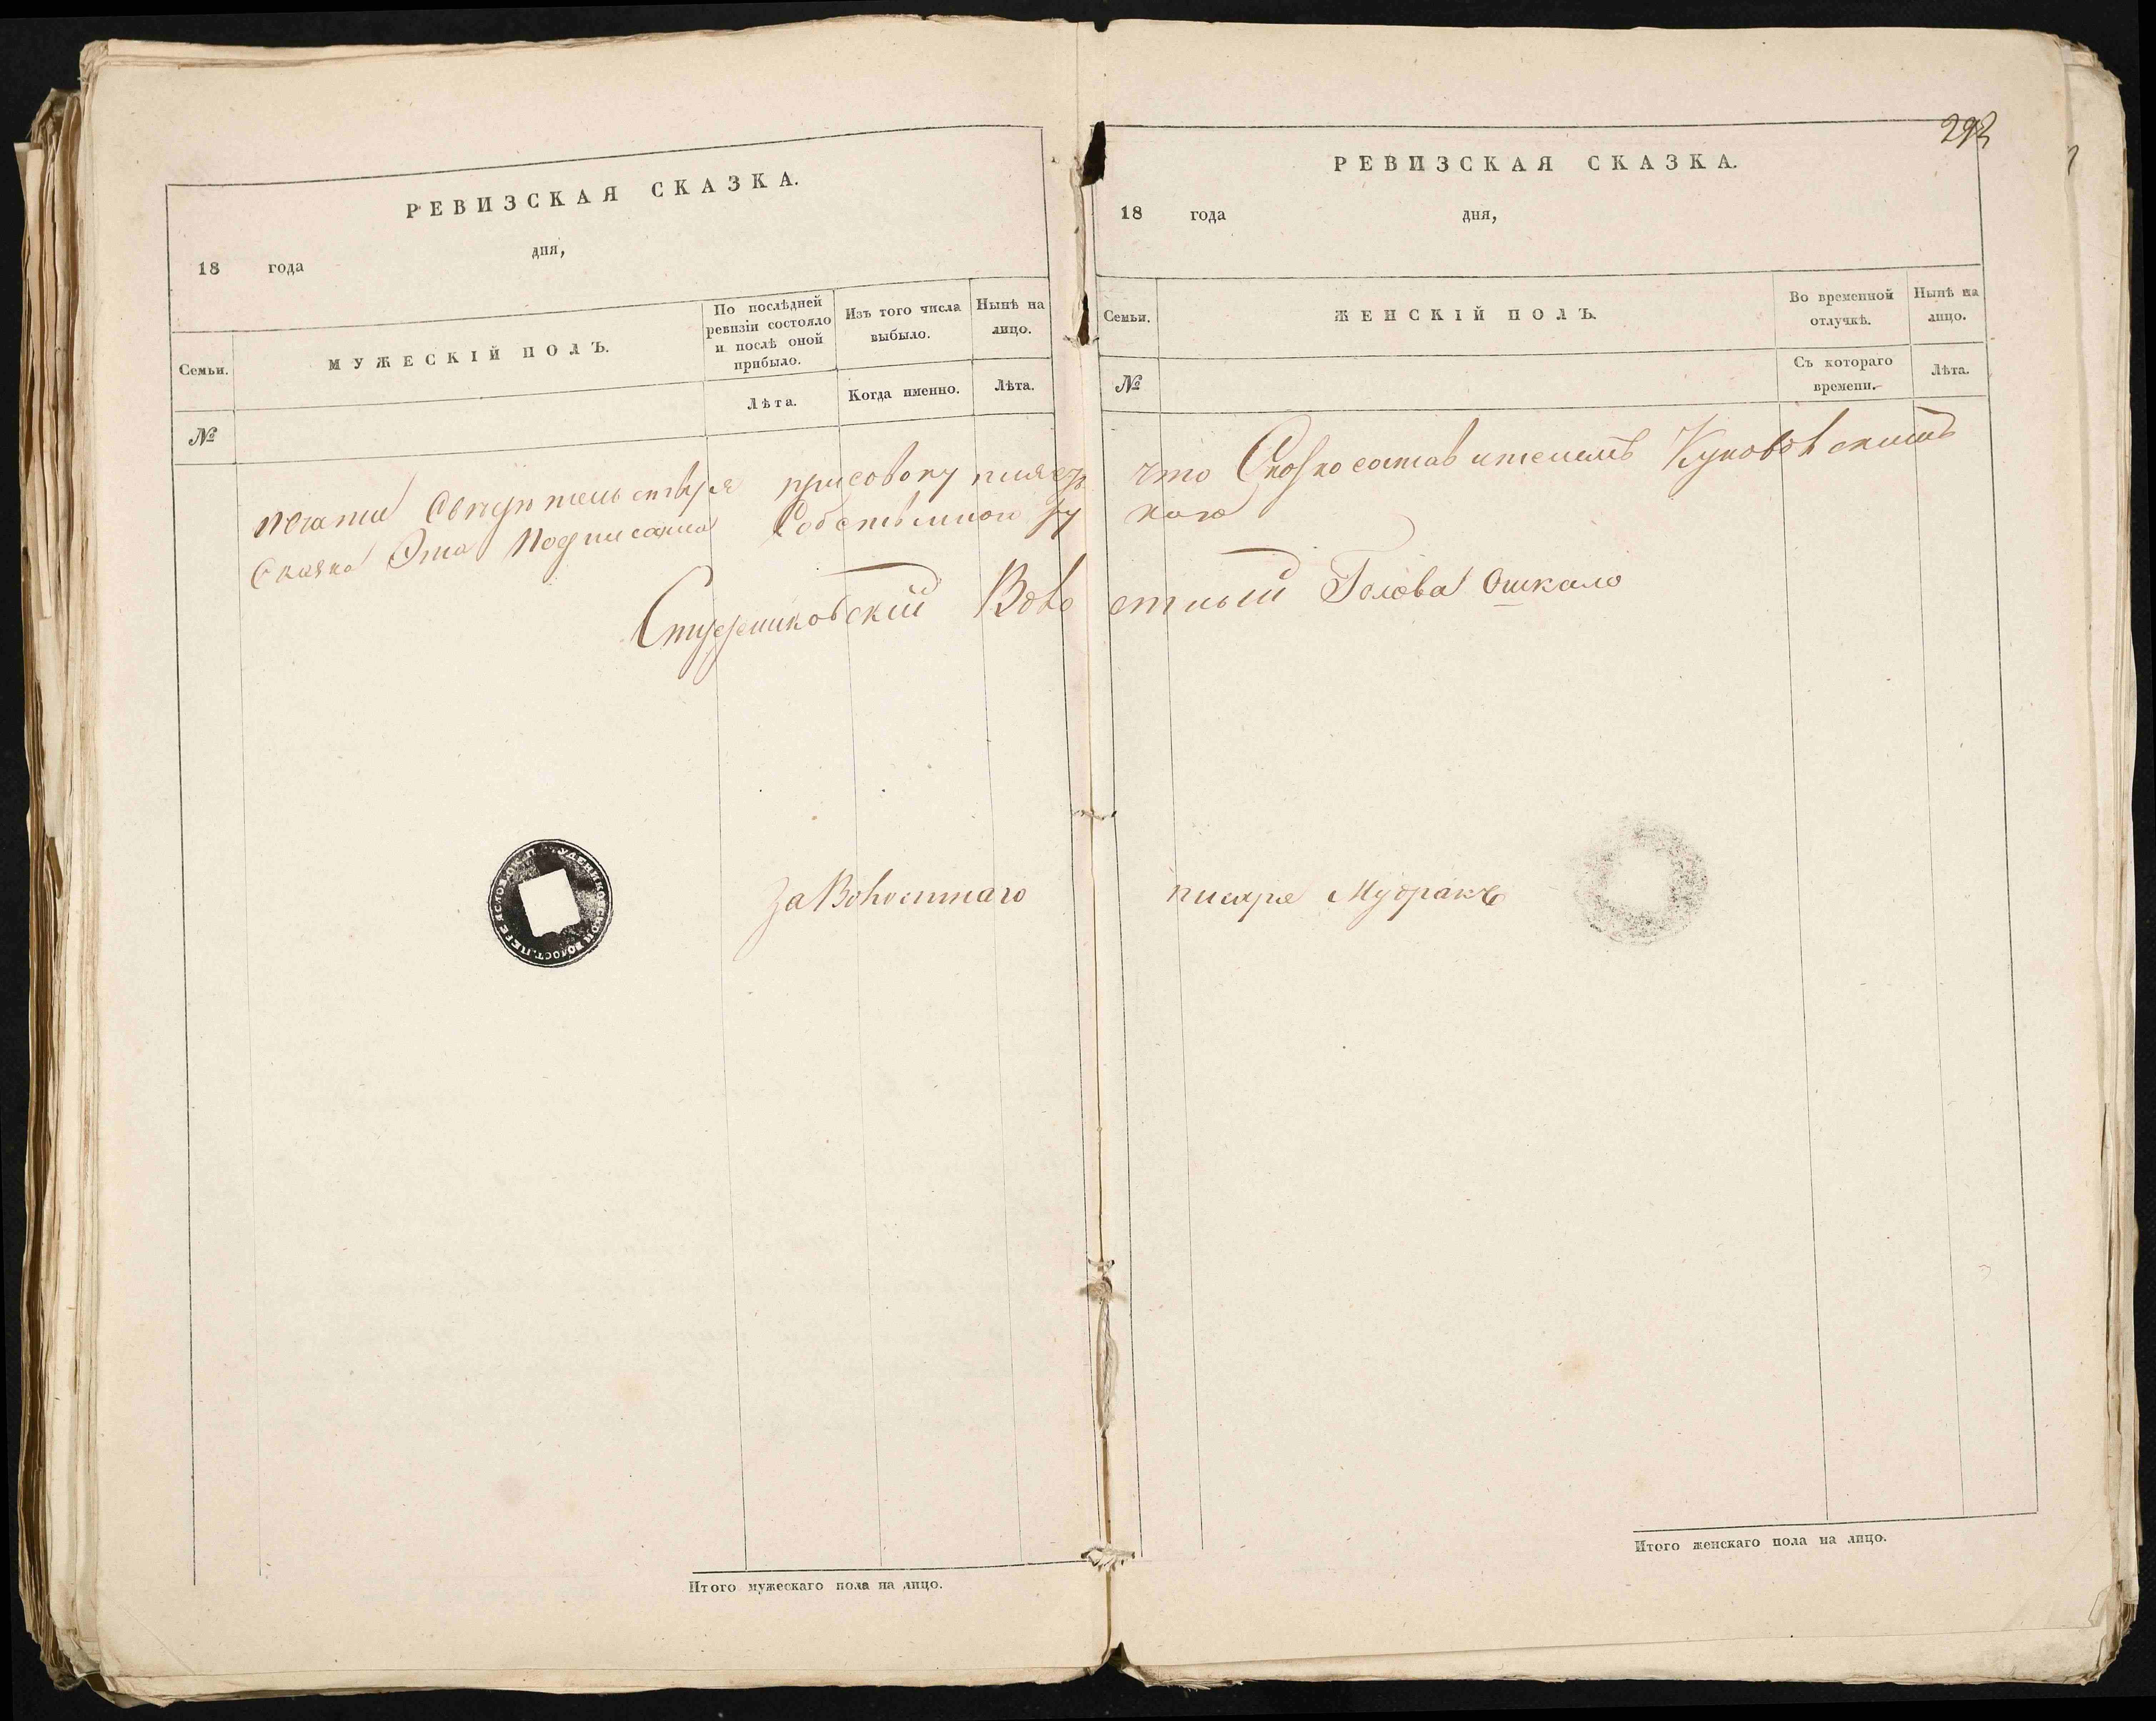 РЕВИЗСКАЯ СКАЗКА.
18 года дня,
Семьи.
МУЖЕСКІЙ ПОЛЪ.
По послѣдней ревизіи состояло и послѣ оной прибыло.
Изъ того числа выбыло.
Нынѣ на лицо.
№
Лѣта.
Когда именно.
Лѣта.
292
РЕВИЗСКАЯ СКАЗКА.
18 года дня,
Семьи.
ЖЕНСКІЙ ПОЛЪ.
Во временной отлучкѣ.
Нынѣ на лицо.
№
Съ котораго времени.
Лѣта.
печати свидѣтельствуя присовокупляетъ что Сказкосоставителемъ
Сказка Эта Подписана Собственною рукою
Студениковскій Волостный Голова Ошкало
За Волостнаго писаря Мудракъ
СТУДЕНИКОВСКОЙ ВОЛОСТ. ПЕРЕЯСЛОВ. ОК. П.
Итого мужескаго пола на лицо.
Итого женскаго пола на лицо.